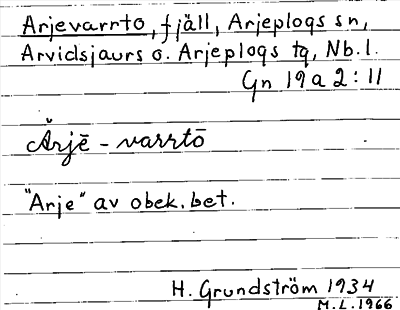 Arjevarrto, fjäll, Arjeplogs sn,
Arvidsjaurs o. Arjeplogs tg, Nb.l.
Gn 19 a 2:11
Ărjē - varrtō
"Arje" av obek. bet.
H. Grundström 1934
M.L. 1966